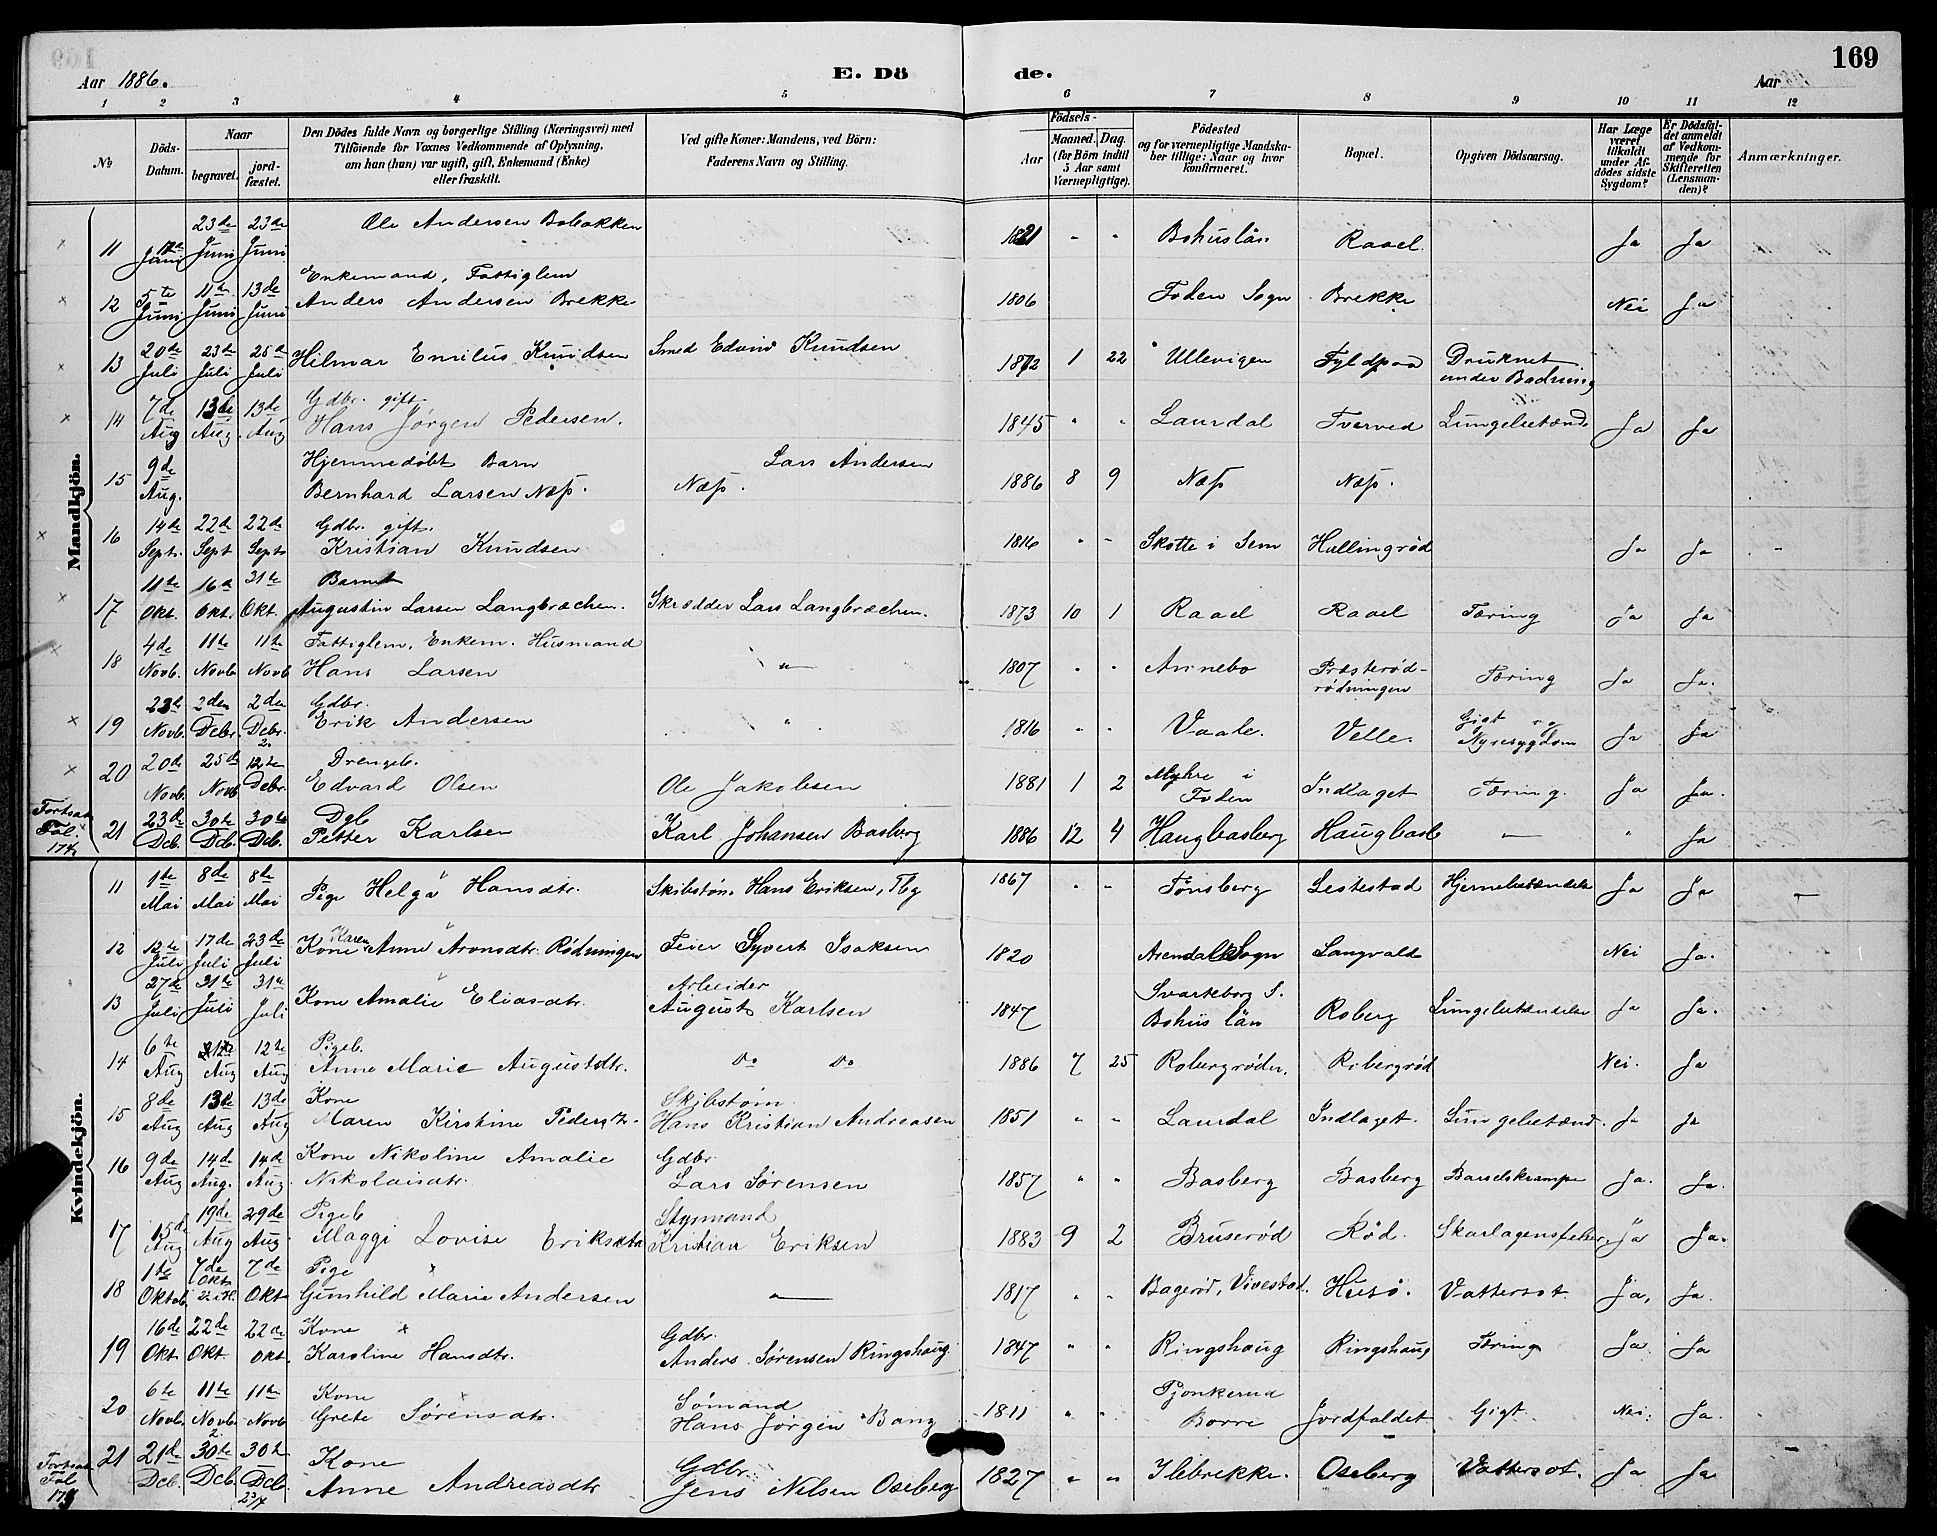 169
Aar 1886.
E. Dö de.
Aar
1 2 3 4 5 6 7 8 9 10 11 12
No
Döds-Datum.
Naar begravet. jordfæstet.
Den Dödes fulde Navn og borgerlige Stilling (Næringsvei) med Tilföiende for Voxnes Vedkommende af Oplysning, om han (hun) var ugift, gift, Enkemand (Enke) eller fraskilt.
Ved gifte Koner: Mandens, ved Börn: Faderens Navn og Stilling.
Födsels- Aar Maaned. Dag. (for Börn indtil 5 Aar samt Værnepligtige).
Födested og for værnepligtige Mandskaber tillige: Naar og hvor konfirmeret.
Bopæl.
Opgiven Dödsaarsag.
Har Læge været tilkaldt under Afdödes sidste Sygdom?
Er Dödsfaldet anmeldt af Vedkommende for Skifteretten (Lensmanden)?
Anmærkninger.
Mandkjön.
11 Juni 23de Juni 23de Juni Ole Andersen Bobakken 1821 " " Bohuslän Raael. Ja Ja
Enkemand, Fattiglem
12 5te Juni 11te Juni 13de Juni Anders Andersen Brekke 1806 Foden Sogn Brekke Nei Ja
13 20de Juli 23de Juli 25de Juli Hilmar Emilus Knudsen Smed Edvin Knudsen 1872 1 22 Ullevigen Fyldpaa Druknet under Badning
Gdbr. gift
14 7de Aug 13de Aug. 13de Aug Hans Jørgen Pedersen. 1845 " " Laurdal Tverved Lungebetænd Ja Ja
Hjemmedøbt Barn Lars Andersen
15 9de Aug. Bernhard Larsen Næss. Næss. 1886 8 9 Næss Næss.
Gdbr. gift.
16 14de Sept. 22de Sept 22de Sept Kristian Knudsen 1816 " " Skotte i Sem Hallingrød Ja Ja
Barnet
17 11te Okt. 16de Okt. 31te Okt. Augustin Larsen Langbræchen. Skrædder Lars Langbræchen. 1873 10 1 Raael Raael Tæring Ja Ja
Fattiglem, Enkem. Husmand
18 4de Novb. 11te Novb. 11te Novb Hans Larsen " 1807 " " Annebo Præsterød-rødningen Tæring Ja Ja.
Gdbr.
19 23de Novb. 2den Debr. 2den Debr. Erik Andersen " 1816 " " Vaale. Velle. Gigt og Nyresygdom Ja Ja
Drengeb.
20 20de Novb. 25de Novb 12te Debr. Edvard Olsen Ole Jakobsen 1881 1 2 Myhre i Foden Indlaget Tæring. Ja Ja.
Dgb
Fortsat Fol. 174 21 23de Dcb. 30te Dcb. 30te Dcb. Petter Karlsen Karl Johansen Basberg 1886 12 4 Haugbasberg Haugbasb — " Ja
Kvindekjön.
11 1te Mai 8de Mai 8de Mai Pige Helga Hansdtr. Skibstøm. Hans Eriksen, Tbg 1867 " " Tønsberg Lestestad Hjernebetændelse Ja Ja —
12 12te Juli 17de Juli 23de Juli Kone Karen Anne Aronsdtr. Rødningen Feier Syvert Isaksen 1820 Arendals Sogn Langvald Nei Ja.
13 27de Juli 31te Juli 31te Juli Kone Amalie Eliasdtr. Arbeider August Karlsen 1847 Svarteborg S. Bohus län Roberg Lungebetændelse Ja Ja.
Pigeb.
14 6te Aug 12te Aug 12te Aug Anne Marie Augustdtr. Do Do 1886 7 25 Robergrøden. Robergrød Nei. Ja
Kone Skibstøm.
15 8de Aug 13de Aug 13de Aug Maren Kirstine Pedersdtr. Hans Kristian Andreasen 1851 " " Laurdal Indlaget. Lungebetænd. Ja Ja
16 9de Aug 14de Aug. 14de Aug. Kone Nikoline Amalie Nikolaisdtr. Gdbr. Lars Sørensen 1857 " " Basberg Basberg Barselskrampe Ja. Ja.
Pigeb Styrmand
17 15de Aug 19de Aug 29de Aug Maggi Lovise Eriksdtr Kristian Eriksen 1883 9 2 Bruserød Rød. Skarlagensfeber. Ja Ja.
Pige
18 1te Oktob. 7de Okt. 7de Okt Gunhild Marie Andersen — 1817 " " Bagerød, Vivestad. Husø. Vattersot. Ja, Ja.
Kone Gdbr.
19 16de Okt 22de Okt. 22de Okt. Karoline Hansdtr. Anders Sørensen Ringshaug 1847 " " Ringshaug Ringshaug Tæring Ja Ja
Kone Sømand
20 6te Novb. 11te Novb. 11te Novb Grete Sørensdtr. Hans Jørgen Bang 1811 " " Pjonkerud Borre Jordfaldet Gigt. Nei. Ja.
Kone Gdbr.
Fortsat Fol 175 21 21de Dcb. 30te Dcb. 30te Dcb. 27/4 Anne Andreasdtr Jens Nilsen Oseberg 1827 " " Ilebrekke. Oseberg Vattersot. Ja Ja